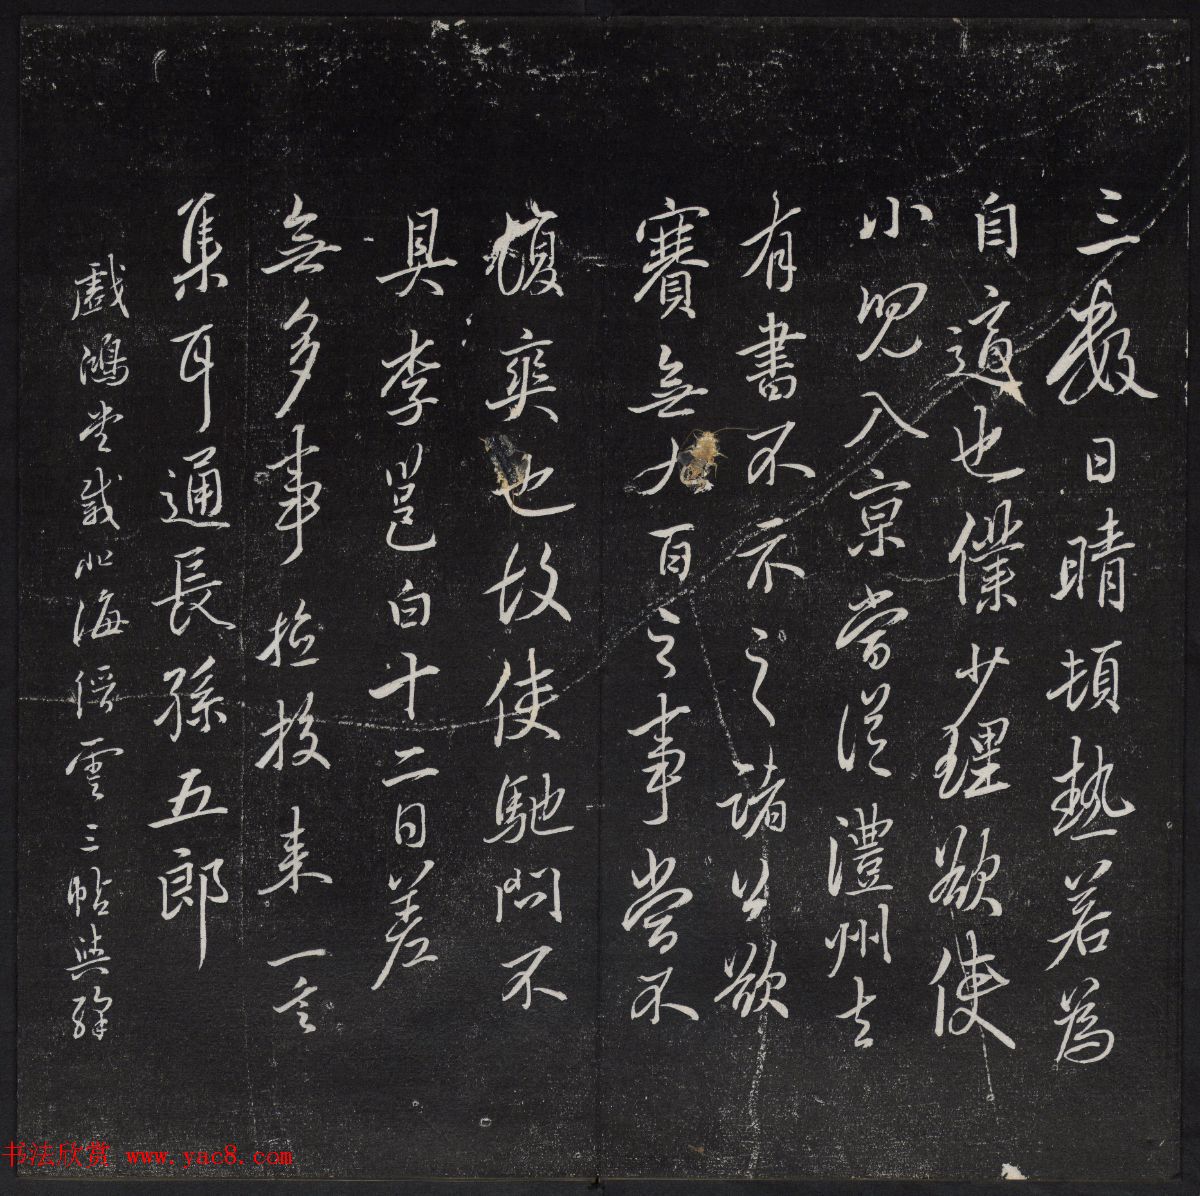 三數日晴頓熱若為
自適也僕少理欲使
小兒入京嘗從澧州去
有書不示之諸公欲
賽無八百之事嘗不
復奕也故使馳問不
具李邕白十二日差
無多事撿投来一言
集耳通長孫五郎
戲鴻堂載北海縉雲三帖與
书法欣赏 www.yac8.com